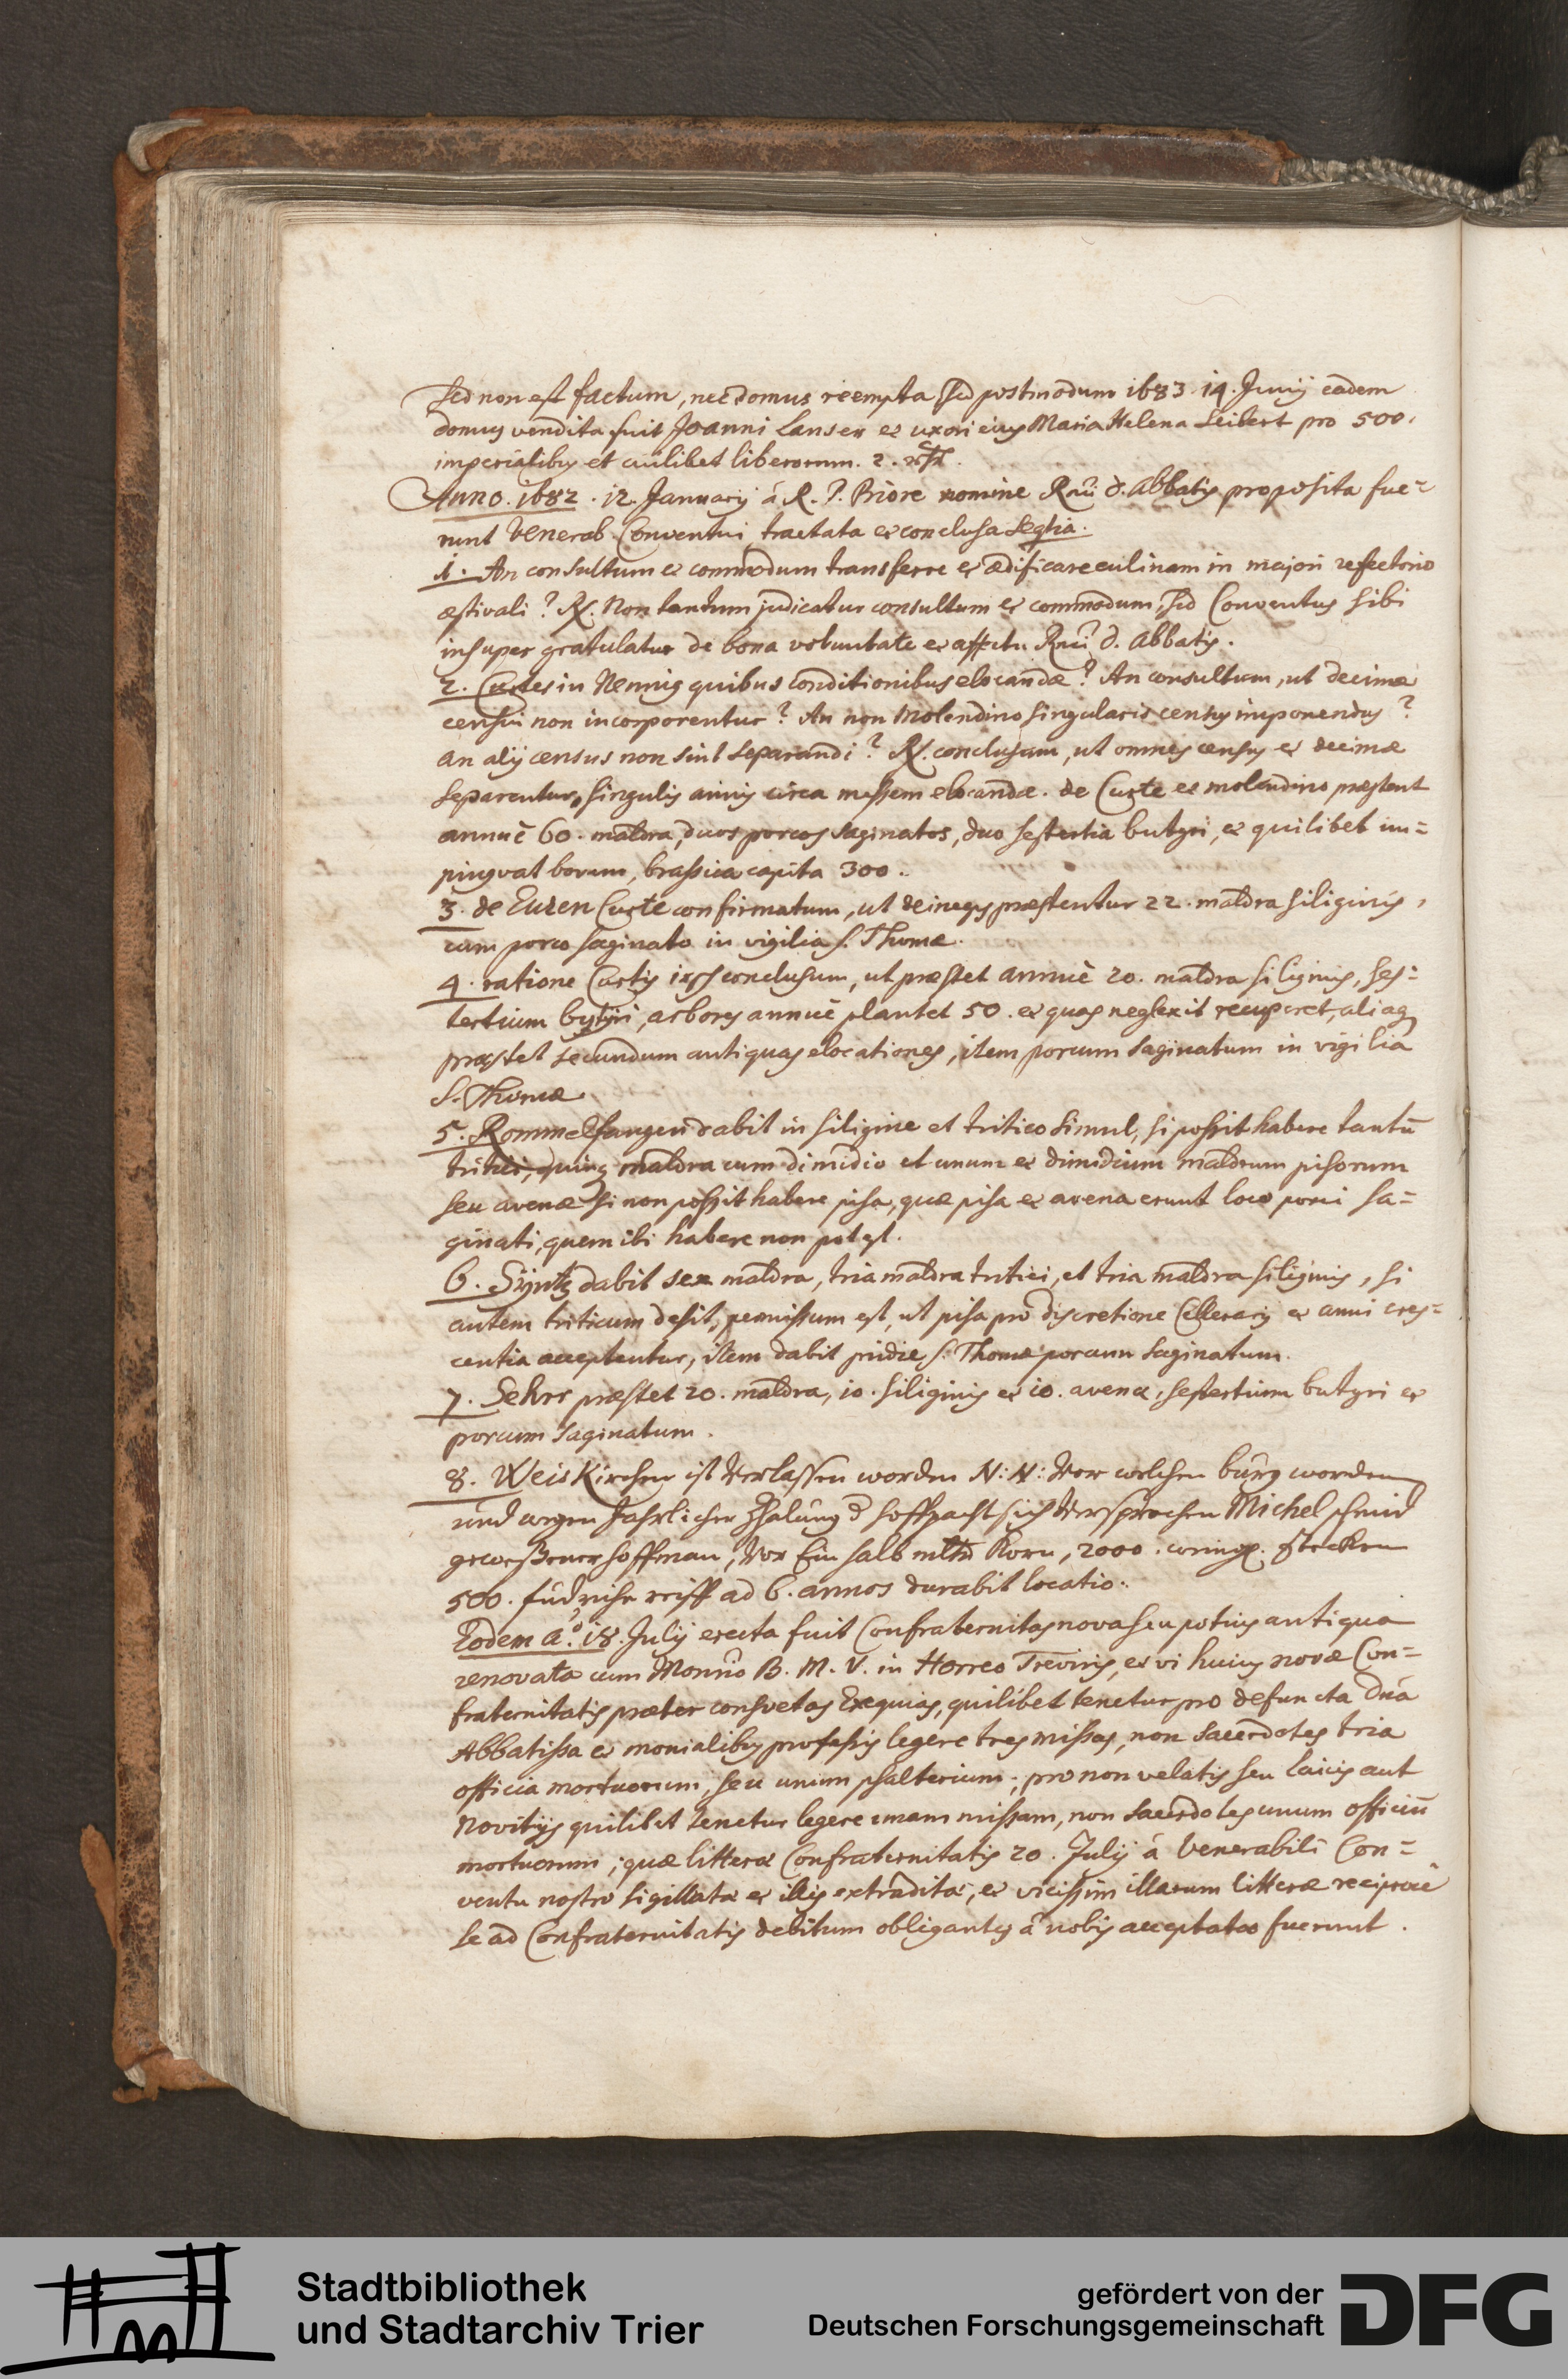 Sed non est factum, nec domus reempta sed postmodum 1683 14. Junij eadem
domus vendita fuit Joanni Lanser et uxori eius Maria Helena Seibert pro 500.
imperialibus et cuilibet liberorum. 2.
Anno. 1682. 12. Januarij á R. P. Priore nomine Rmi d. Abbatis proposita fue=
runt Venerab. Conventui, tractata et conclusa seqtia.
1. An consultum et commodum transferre et ædificare culinam in majori refectorio
æstivali? R. Non tantum judicatur consultum et commodum, sed Conventus sibi
insuper gratulatur de bona voluntate et affectu Rmi d. Abbatis.
2. Curtes in Nennig quibus conditionibus elocandæ? An consultum, ut decimæ
censui non incorporentur? An non Molendino singularis census imponendus?
an alij census non sint separandi? R. conclusum, ut omnes census et decimæ
separentur, singulis annis circa messem elocandæ. de Curte et molendino præstent
annuè 60. maldra, duos porcos saginatos, duo sestertia butyri, et quilibet im=
pinguat bovem, brassica capita 300.
3. de Euren Curte confirmatum, ut deinceps præstentur 22. maldra siliginis,
cum porco saginato in vigilia S. Thomæ.
4. ratione Curtis conclusum, ut præstet annuè 20. maldra siliginis, ses=
tertium bytyri, arbores annuè plantet 50. et quas neglexit recuperet, aliaq
præstet secundum antiquas elocationes, item porcum saginatum in vigilia
S. Thomæ.
5. Rommelfangen dabit in siligine et tritico simul, si possit habere tantū
tritici, quinq maldra cum dimidio et unum et dimidium maldrum pisorum
seu avenæ si non possit habere pisa, quæ pisa et avena erunt loco porci sa=
ginati, quem ibi habere non potest.
6. Sÿntz dabit sex maldra, tria maldra tritici, et tria maldra siliginis, si
autem triticum desit, permissum est, ut pisa pro discretione Cellerarij et anni cres=
centia acceptentur, item dabit pridie S. Thomæ porcum saginatum.
7. Sehrr præstet 20. maldra, 10. siliginis et 10. avenæ, sestertium butyri et
porcum saginatum.
8. Weiskirchen ist verlassen worden N: N: vor welchen bürg worden
und wegen Jahrlicher Zhalung d hoffpacht sich versprochen Michel schmid
geweßener hoffman, vor Ein halb mltr Korn, 2000. wing. stecken
500. reiff ad 6. annos durabit locatio.
Eodem a.º 18. Julij erecta fuit Confraternitas nova seu potius antiqua
renovata cum Monrio B. M. V. in Horreo Treviris, et vi huius novæ Con=
fraternitatis præter consuetas Exequias, quilibet tenetur pro defuncta Dnâ
Abbatissa et monialibus professis legere tres missas, non sacerdotes tria
officia mortuorum, seu unum psalterium; pro non velatis seu laicis aut
Novitijs quilibet tenetur legere unam missam, non sacerdotes unum officiū
mortuorum; quæ litteræ Confraternitatis 20. Julij á Venerabili Con=
ventu nostro sigillatæ et illis extraditæ, et vicissim illarum litteræ reciprocè
se ad Confraternitatis debitum obligantes á nobis acceptatæ fuerunt.
Stadtbibliothek
und Stadtarchiv Trier
gefördert von der
Deutschen Forschungsgemeinschaft
DFG